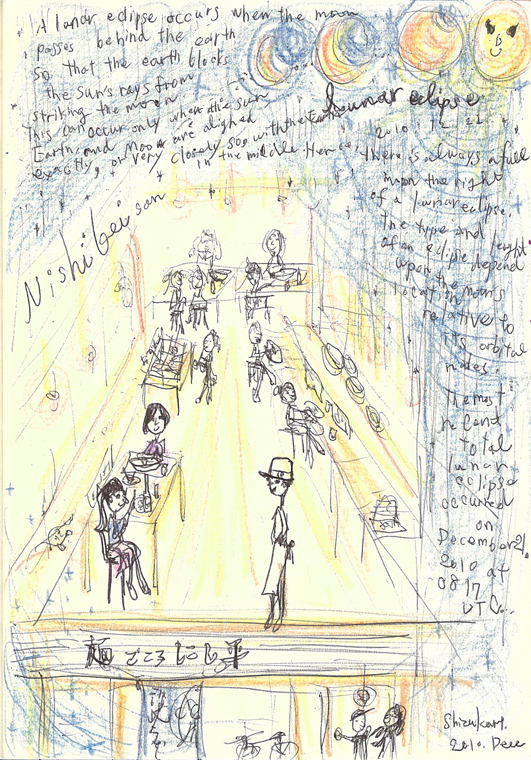 A lunar eclipse occurs when the moon
passes behind the earth
so that the earth blocks
the sun's rays from
striking the moon
This can occur only when the sun
Earth and Moon are aligned
exactly, or very closely so, with the Earth
in the middle. Hence,
lunar eclipse
2010. 12. 22.
there is always a full
moon the night
of a lunar eclipse.
The type and lenght
of an eclipse depend
upon the Moon's
location
relative to
its orbital
nodes.
The most
recent
total
lunar
eclipse
occured
on
December 21.
2010 at
08:17
UTC...
Nishibei san
麺 どころ にし平
Shizukart.
2010. Dece